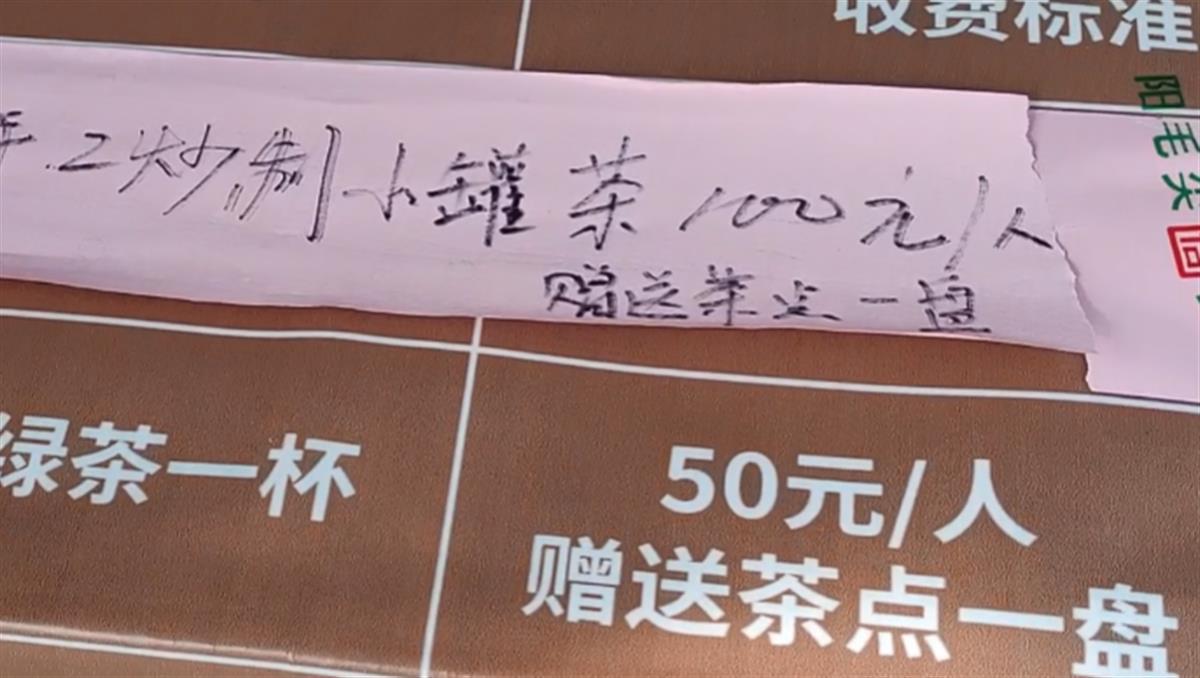 收费标准
阳毛尖
手工炒制小罐茶100元/人
赠送茶点一盘
绿茶一杯
50元/人
赠送茶点一盘